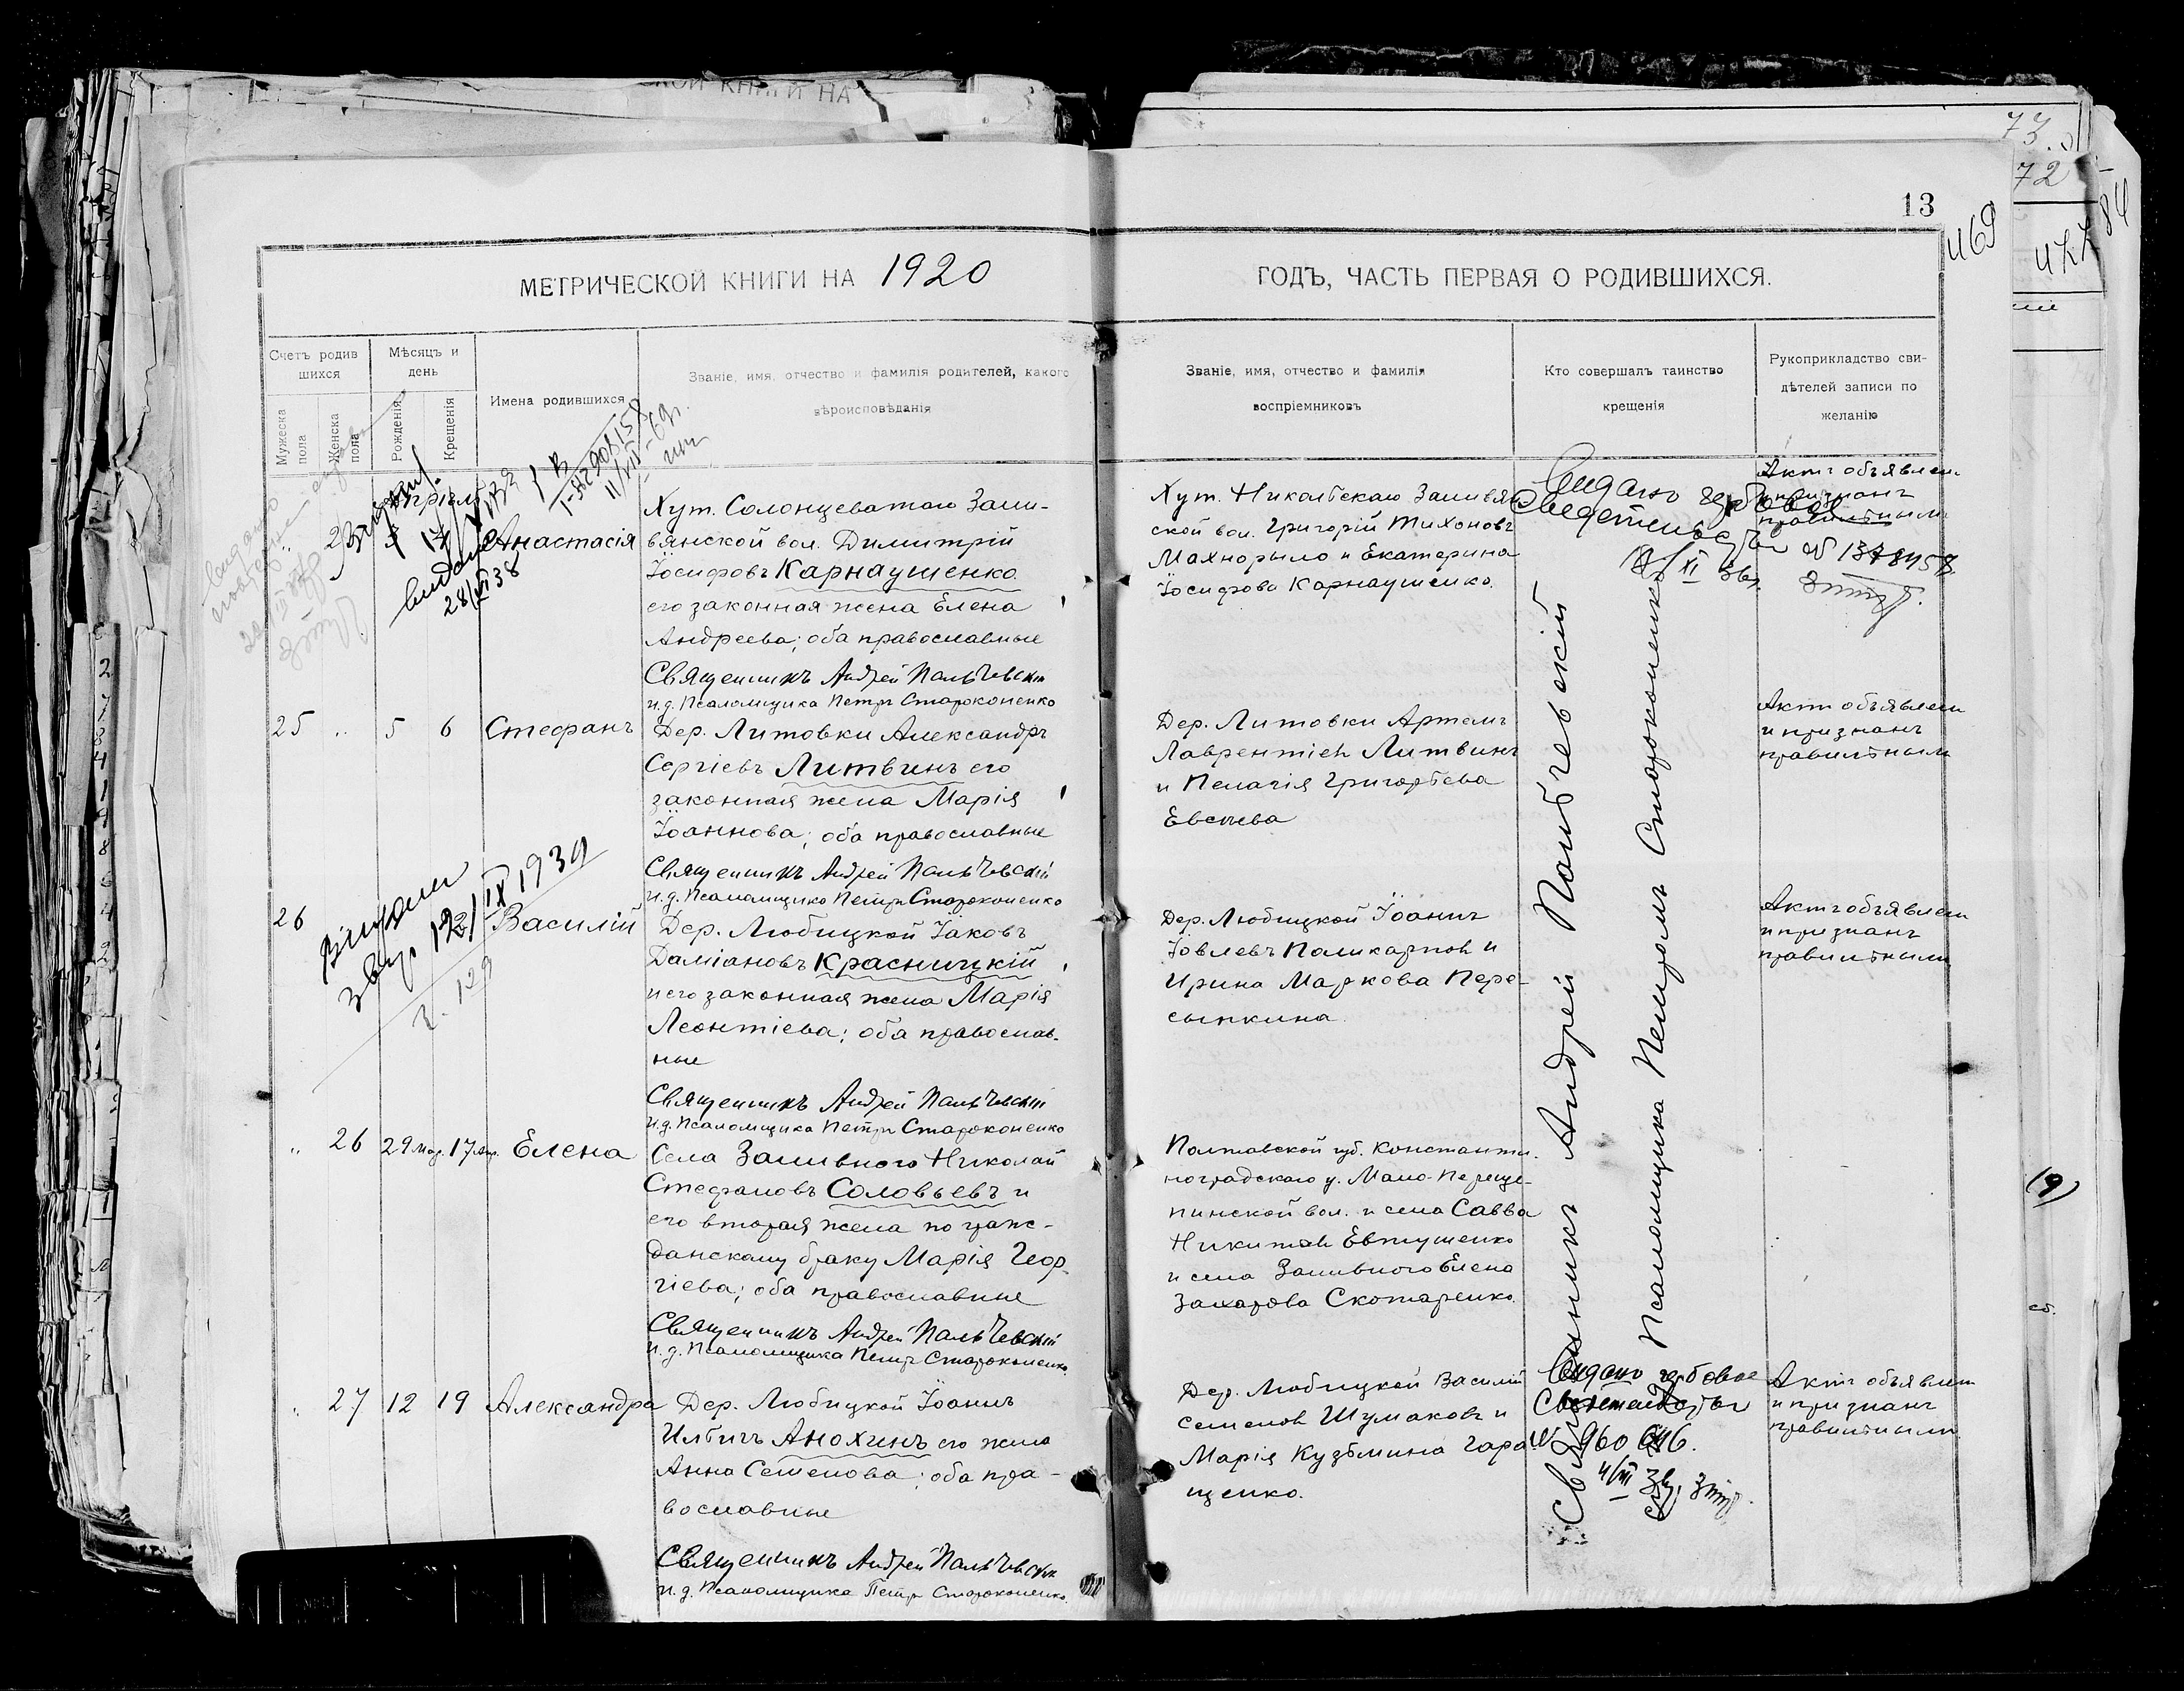 13
469
МЕТРИЧЕСКОЙ КНИГИ НА 1920
ГОДЪ, ЧАСТЬ ПЕРВАЯ О РОДИВШИХСЯ.
Счетъ родив
шихся
Мужеска
пола
Женска
пола
Мѣсяцъ и
день
Рожденія
Крещенія
Имена родившихся
Званіе, имя, отчество и фамилія родителей, какого
вѣроисповѣданія
Званіе, имя, отчество и фамилія
воспріемниковъ
Кто совершалъ таинство
крещенія
Рукоприкладство сви-
дѣтелей записи по
желанію
Анастасія
28/XI 38
Хут. Солонцеватаго Зали-
вянской вол. Димитрій
Іосифовъ Карнаушенко
его законная жена Елена
Андреева; оба православные
Священникъ Андрей Пальчевскій
и.д. Псаломщика Петръ Староконенко
Хут. Никольскаго Заливян
ской вол. Григорій Тихоновъ
Махнорыло и Екатерина
Іосифова Карнаушенко.
Актъ объявлен
и признанъ
правильнымъ
25 " 5 6 Стефанъ
Дер. Литовки Александръ
Сергіевъ Литвинъ его
законная жена Марія
Іоаннова; оба православные
Священникъ Андрей Пальчевскій
и.д. Псаломщика Петръ Староконенко
Дер. Литовки Артемъ
Лаврентіев Литвинъ
и Пелагія Григорьева
Актъ объявлен
и признанъ
правильнымъ
26
Василій
12/IX 1939
Дер. Любицкой Іаковъ
Даміановъ Красницкій
и его законная жена Марія
Леонтіева; оба православ-
ные
Священникъ Андрей Пальчевскій
и.д. Псаломщика Петръ Староконенко
Дер. Любицкой Іоаннъ
Іовлевъ Поликарпов и
Ирина Маркова Пере-
сыпкина
Актъ объявлен
и признанъ
правильнымъ
" 26 29 мар. 17 апр. Елена
Села Заливного Николай
Стефановъ Соловьевъ и
его вторая жена по граж-
данскому браку Марія Геор-
гіева; оба православные
Священникъ Андрей Пальчевскій
и.д. Псаломщика Петръ Староконенко
Полтавской губ. Константи-
ноградскаго у. Мало-Переще-
пинской вол. и села Савва
Никитов Евтушенко
и села Заливного Елена
Захарова Скотаренко.
" 27 12 19 Александра
Дер. Любицкой Іоаннъ
Ильичъ Анохинъ его жена
Анна Семенова; оба пра-
вославные
Священникъ Андрей Пальчевскій
и.д. Псаломщика Петръ Староконенко
Дер. Любицкой Василій
Семенов Шумаковъ и
Марія Кузьмина Гара
щенко.
Актъ объявлен
и признанъ
правильнымъ
Священникъ Андрей Пальчевскій
Псаломщика Петромъ Староконенко